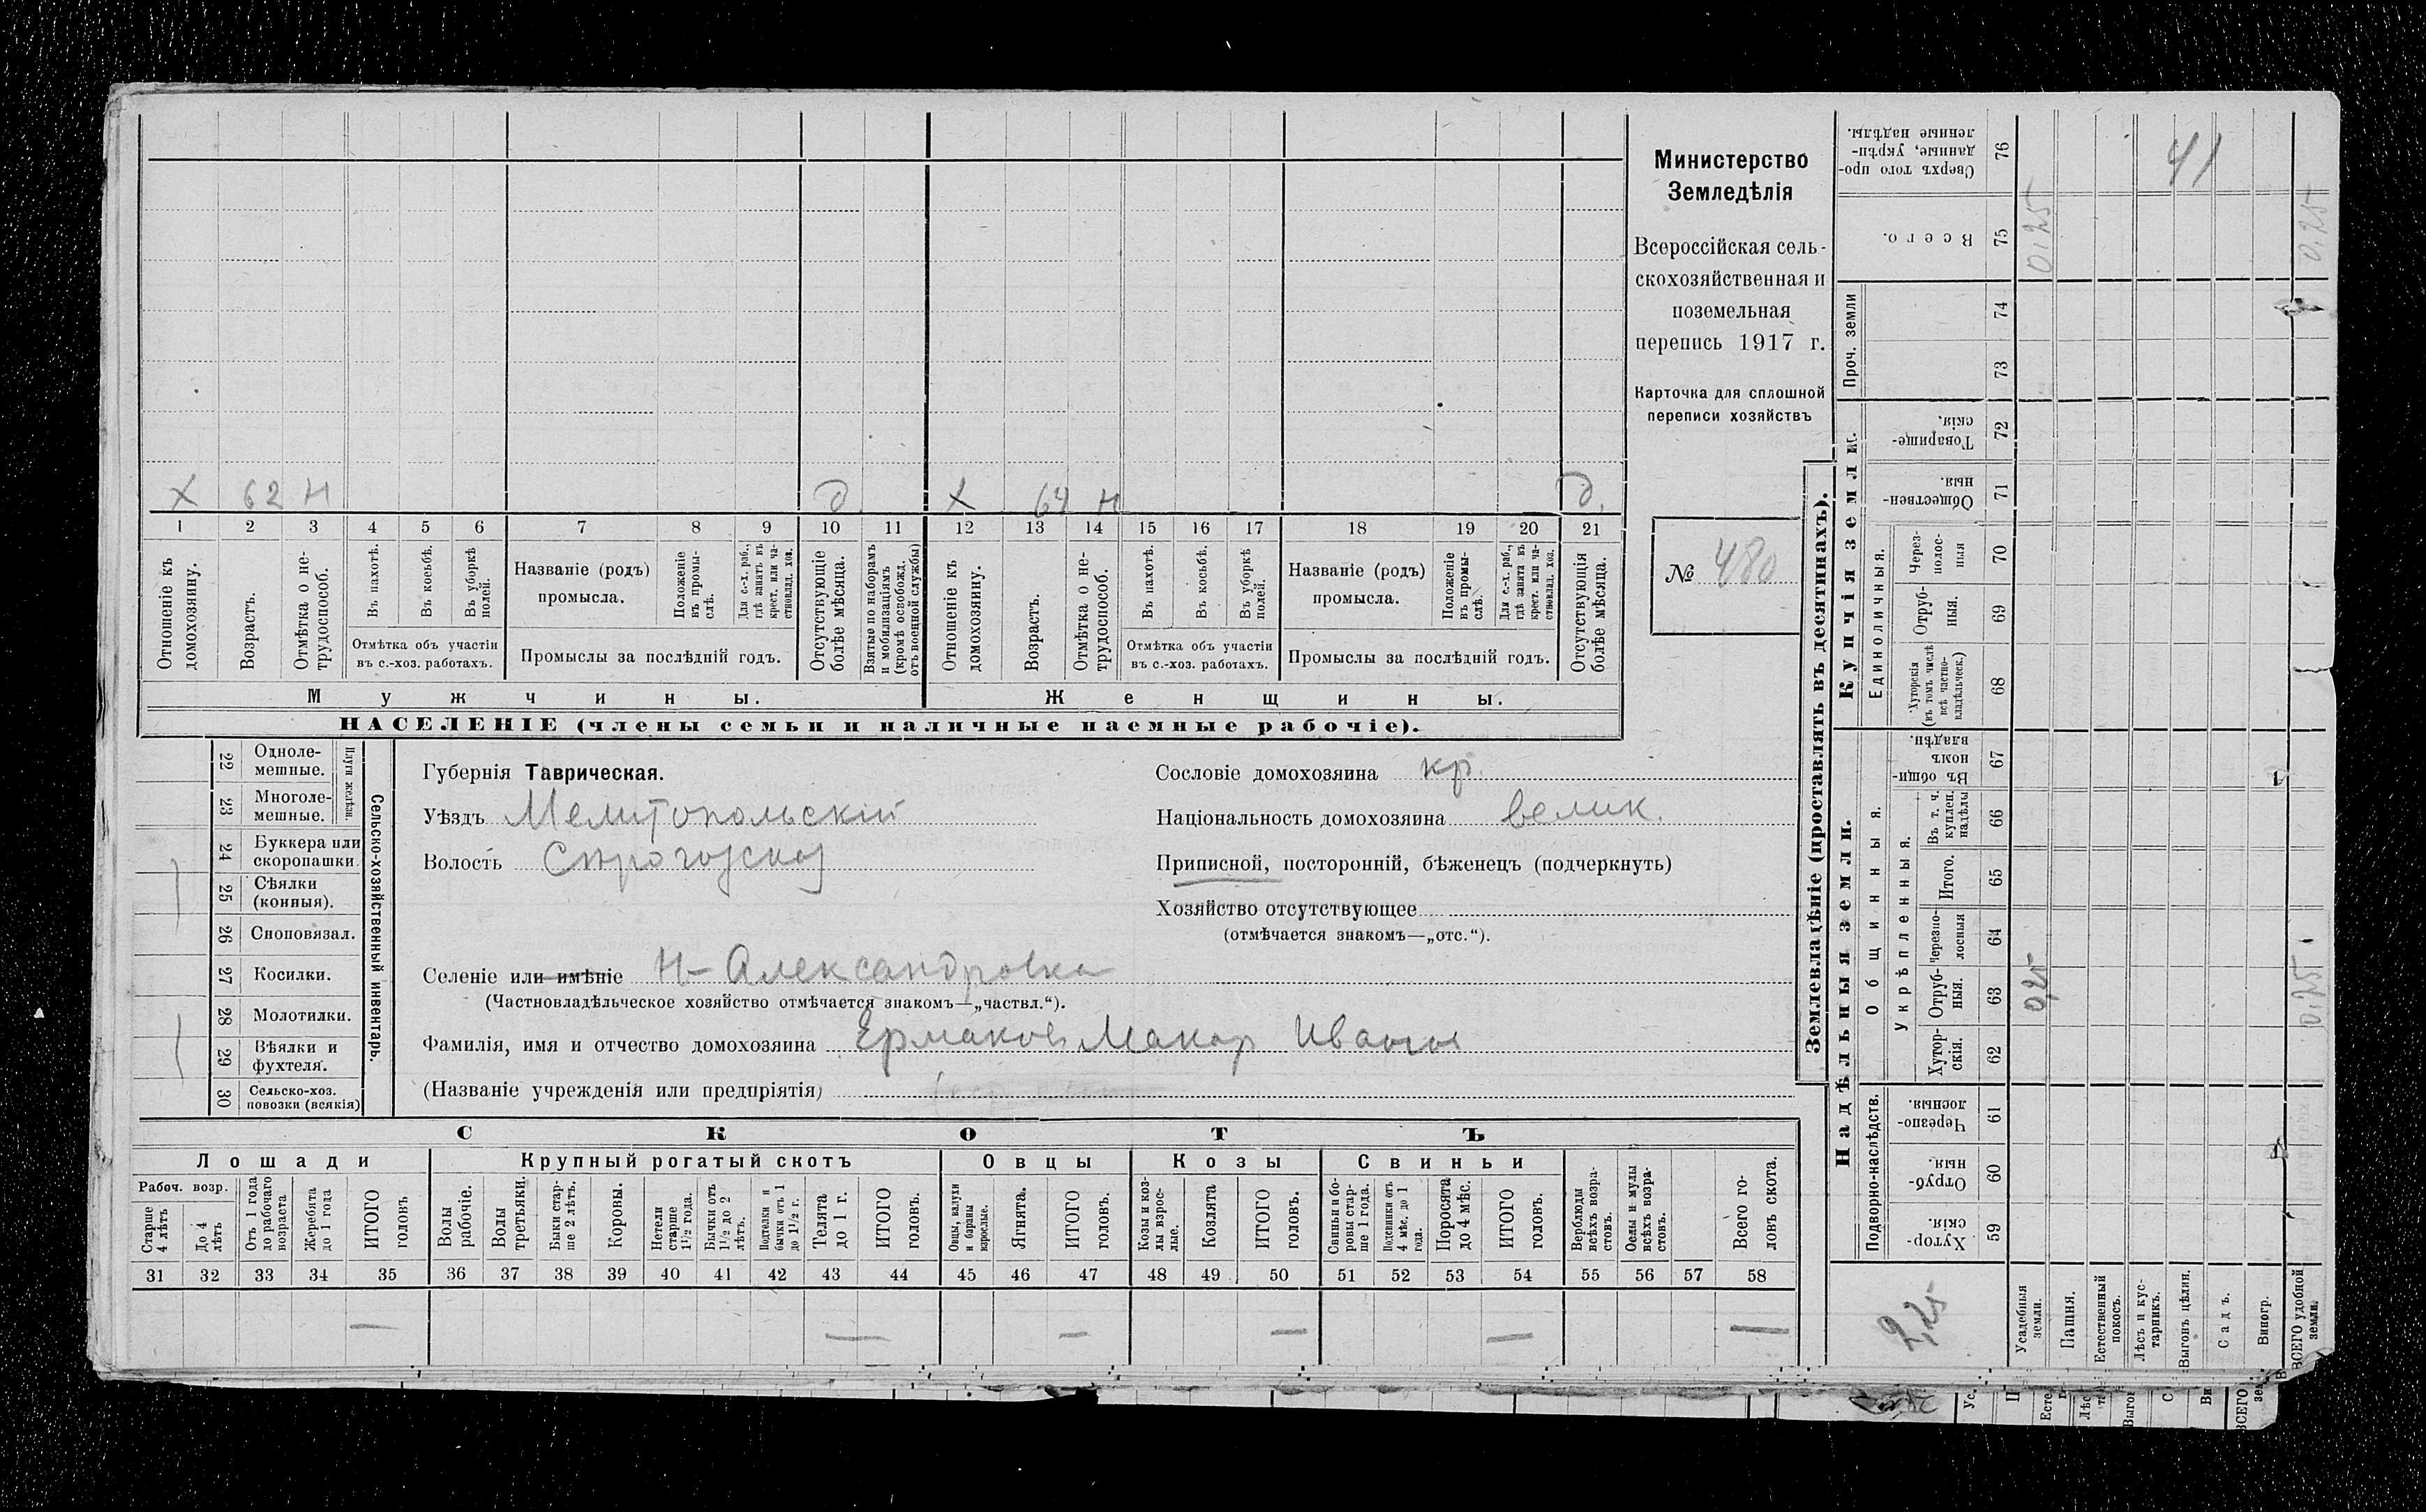 Министерство
Земледѣлія
Всероссійская сель-
скохозяйственная и
поземельная
перепись 1917 г.
Карточка для сплошной
переписи хозяйствъ
№ 480
X 62 Н д X 64 Н д.
1 2 3 4 5 6 7 8 9 10 11 12 13 14 15 16 17 18 19 20 21
Отношеніе къ
домохозяину.
Возрастъ.
Отмѣтка о не-
трудоспособ.
Въ пахотѣ.
Въ косьбѣ.
Въ уборкѣ
полей.
Отмѣтка объ участіи
въ с.-хоз. работахъ.
Названіе (родъ)
промысла.
Положеніе
въ промы-
слѣ.
Для с.-х. раб.,
гдѣ занятъ въ
крест. или ча-
стновлад. хоз.
Промыслы за послѣдній годъ.
Отсутствующіе
болѣе мѣсяца.
Взятые по наборамъ
и мобилизаціямъ
(кромѣ освобожд.
отъ военной службы)
Отношеніе къ
домохозяину.
Возрастъ.
Отмѣтка о не-
трудоспособ.
Въ пахотѣ.
Въ косьбѣ.
Въ уборкѣ
полей.
Отмѣтка объ участіи
въ с.-хоз. работахъ.
Названіе (родъ)
промысла.
Положеніе
въ промы-
слѣ.
Для с.-х. раб.,
гдѣ занята въ
крест. или ча-
стновлад. хоз.
Промыслы за послѣдній годъ.
Отсутствующія
болѣе мѣсяца.
Мужчины.
Женщины.
НАСЕЛЕНІЕ (члены семьи и наличные наемные рабочіе).
22 Одноле-
мешные.
23 Многоле-
мешные.
Плуги желѣзн.
24 Буккера или
скоропашки.
25 Сѣялки
(конныя).
26 Сноповязал.
27 Косилки.
28 Молотилки.
29 Вѣялки и
фухтеля.
30 Сельско-хоз.
повозки (всякія)
Сельско-хозяйственный инвентарь.
Губернія Таврическая.
Уѣздъ Мелитопольскій
Волость
Селеніе или имѣніе Н-Александровка
(Частновладѣльческое хозяйство отмѣчается знакомъ—„частвл.“).
Фамилія, имя и отчество домохозяина Ермаковъ Макар Иванов
(Названіе учрежденія или предпріятія)
Сословіе домохозяина кр.
Національность домохозяина велик.
Приписной, посторонній, бѣженецъ (подчеркнуть)
Хозяйство отсутствующее
(отмѣчается знакомъ—„отс.“).
СКОТЪ
Лошади
Рабоч. возр.
Старше
4 лѣтъ
До 4
лѣтъ
Отъ 1 года
до рабочаго
возраста
Жеребята
до 1 года
ИТОГО
головъ
Крупный рогатый скотъ
Волы
рабочіе.
Волы
третьяки.
Быки стар-
ше 2 лѣтъ.
Коровы.
Нетели
старше
1½ года.
Бычки отъ
1½ до 2
лѣтъ.
Подтелки и
бычки отъ 1
до 1½ г.
Телята
до 1 г.
ИТОГО
головъ.
Овцы
Овцы, валухи
и бараны
взрослые.
Ягнята.
ИТОГО
головъ.
Козы
Козы и коз-
лы взрос-
лые.
Козлята
ИТОГО
головъ.
Свиньи
Свиньи и бо-
ровы стар-
ше 1 года.
Подсвинки отъ
4 мѣс. до 1
года.
Поросята
до 4 мѣс.
ИТОГО
головъ.
Верблюды
всѣхъ возра-
стовъ.
Ослы и мулы
всѣхъ возра-
стовъ.
Всего го-
ловъ скота.
31 32 33 34 35 36 37 38 39 40 41 42 43 44 45 46 47 48 49 50 51 52 53 54 55 56 57 58
— — — — — —
Землевладѣніе (проставлять въ десятинахъ).
Сверхъ того про-
данные, укрѣп-
ленные надѣлы.
76
41
Всего.
75
0,25
0,25
Проч. земли
74
73
Купчія земли.
Товарище-
скія.
72
Обществен-
ныя.
71
Единоличныя.
Через-
полос-
ныя
70
Отруб-
ныя.
69
Хуторскія
(въ томъ числѣ
всѣ частно-
владѣльческ.)
68
Надѣльныя земли.
Общинныя.
Въ общи-
номъ
владѣн.
67
Укрѣпленныя.
Въ т. ч.
куплен.
надѣлы
66
Итого.
65
Черезпо-
лосныя
64
Отруб-
ныя.
63
0,25
0,25
Хутор-
скія.
62
Подворно-наслѣдств.
Черезпо-
лосныя.
61
Отруб-
ныя.
60
Хутор-
скія.
59
2,25
Усадебныя
земли.
Пашня.
Естественный
покосъ.
Лѣсъ и кус-
тарникъ.
Выгонъ цѣлин.
Садъ.
Виногр.
ВСЕГО удобной
земли.